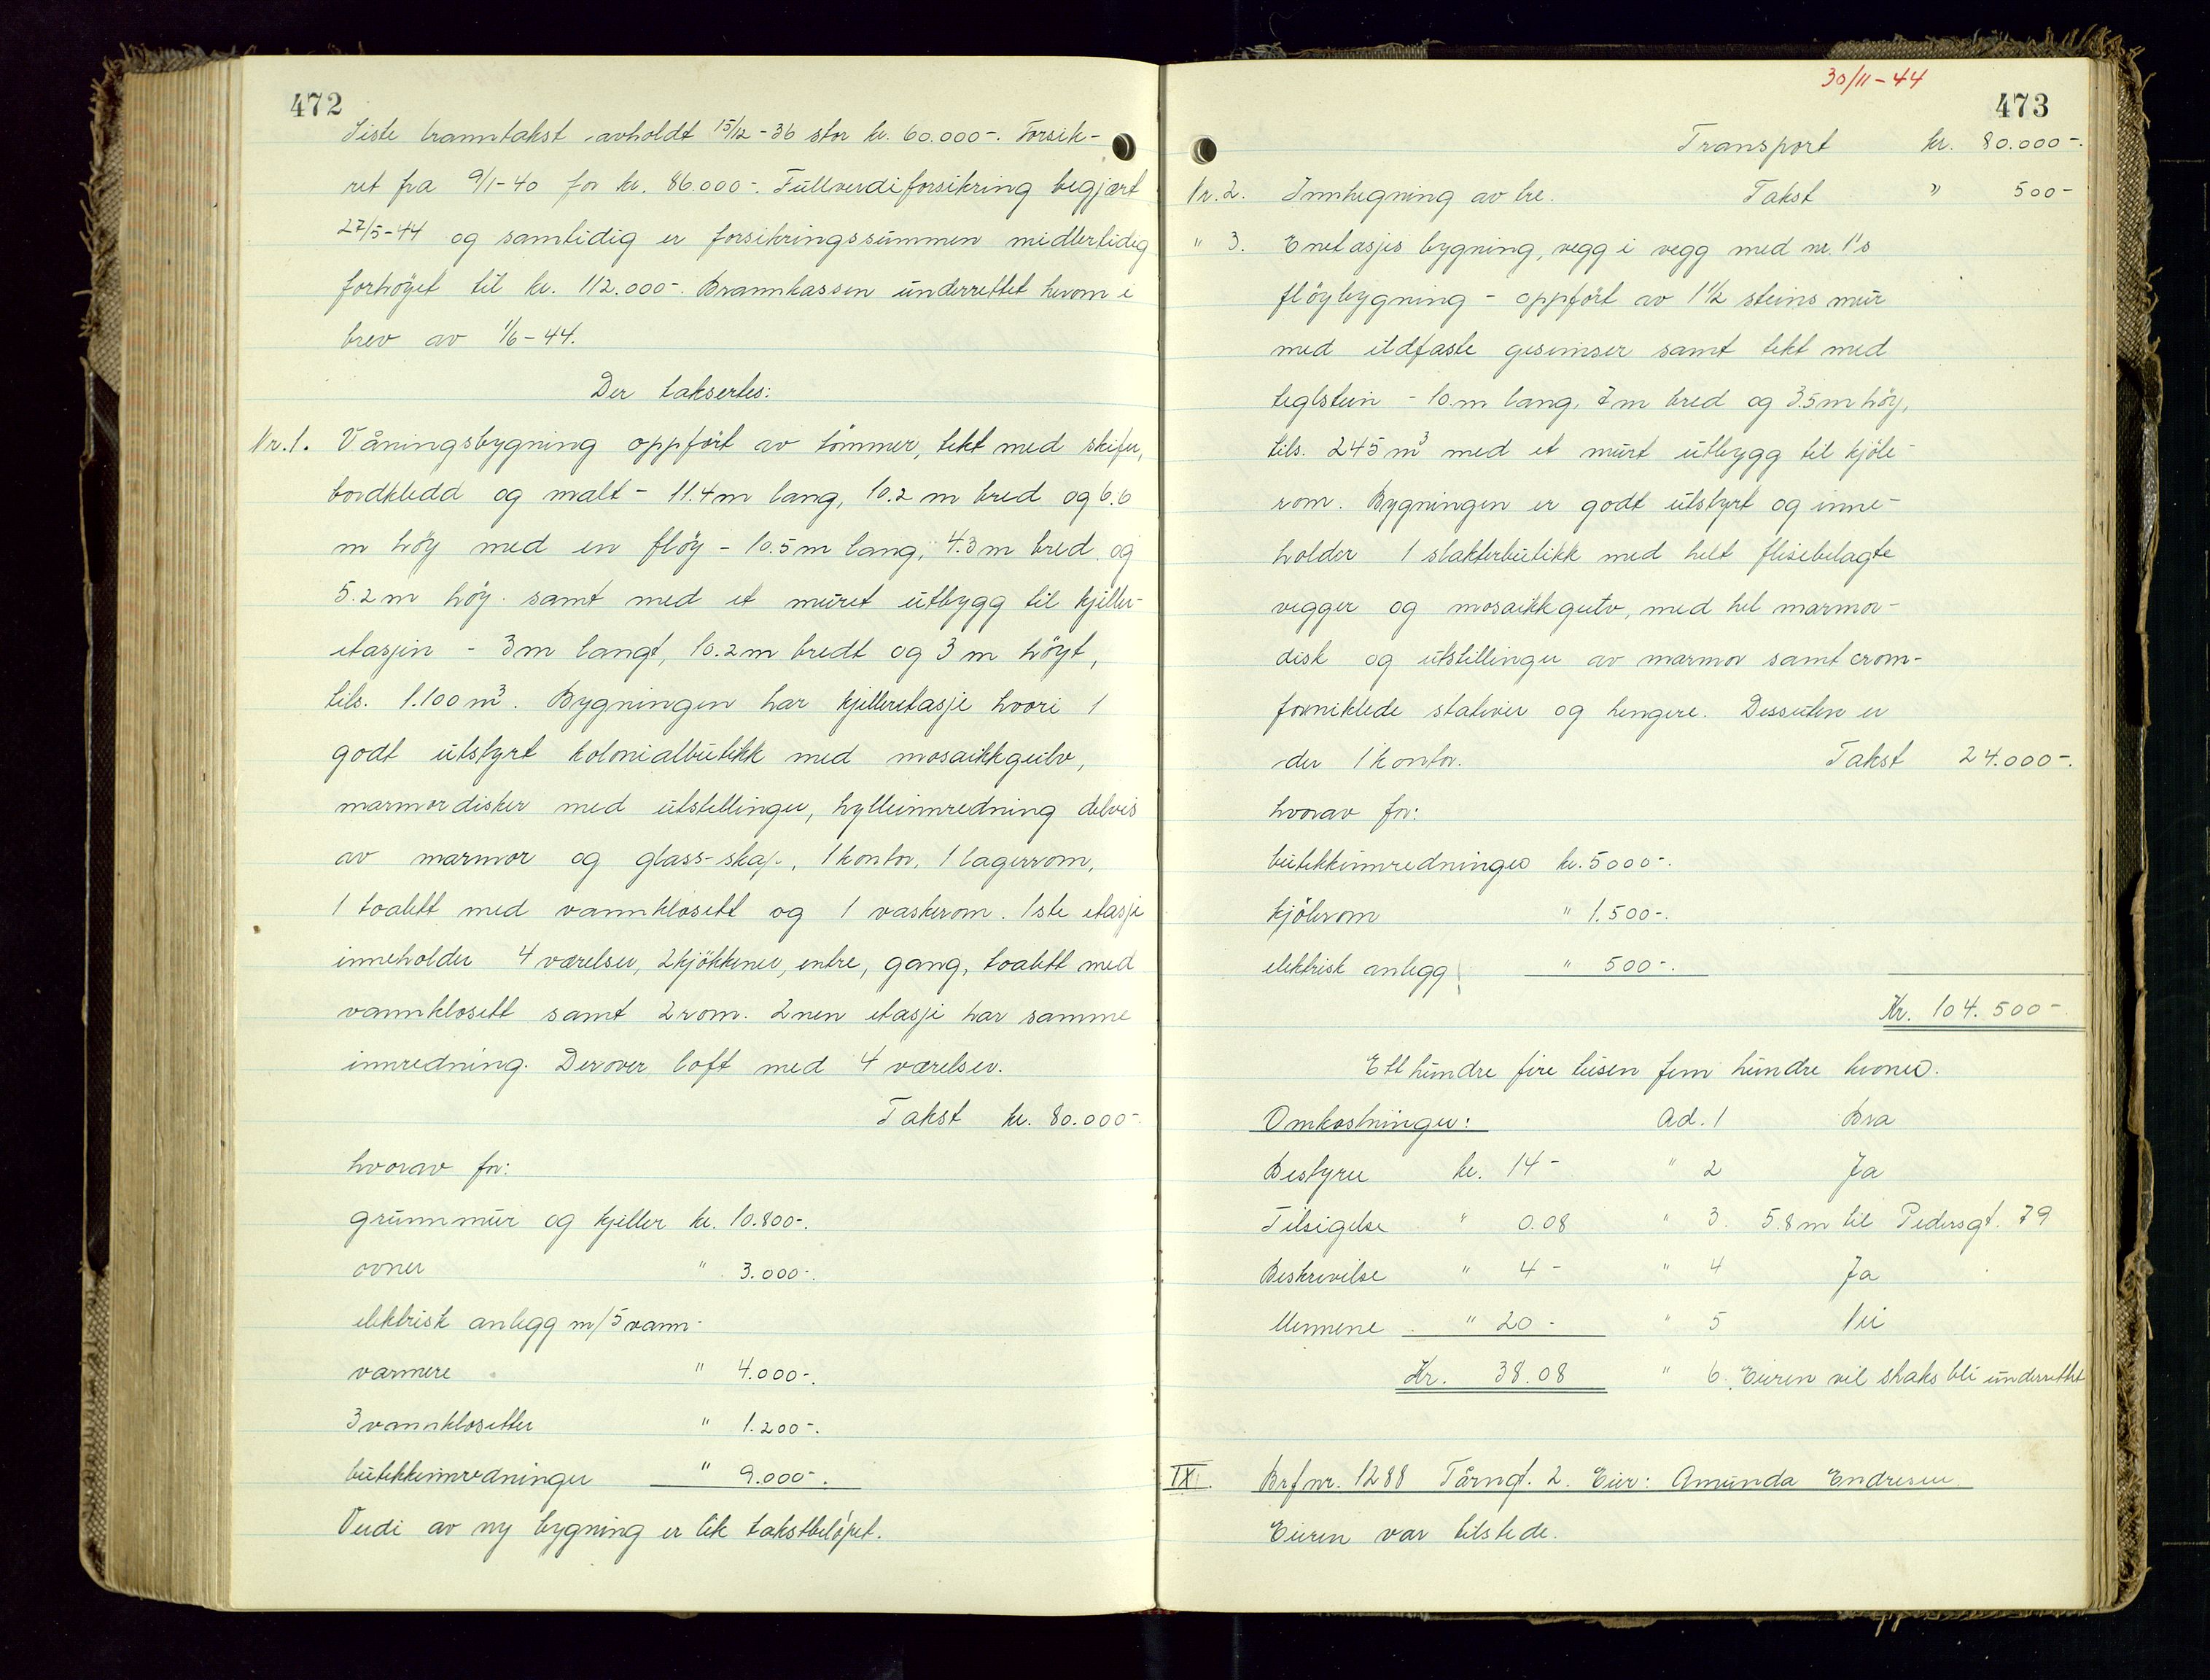 472
Siste branntakst avholdt 15/12-36 stor kr. 60.000-. Forsik-
ret fra 9/1-40 for kr. 86.000-. Fullverdiforsikring begjært
27/5-44 og samtidig er forsikringssummen midlertidig
forhöyet til kr. 112.000-. Brannkassen underrettet herom i
brev av 1/6-44.
Der taksertes:
Nr.1. Våningsbygning oppfört av tömmer, tekt med skifer,
bordkledd og malt - 11.4m lang, 10.2 m bred og 6.6
m höy med en flöy - 10.5m lang, 4.3m bred og
5.2m höy samt med et muret utbygg til kjeller-
etasjen - 3m langt, 10.2m bredt og 3 m höyt,
tils. 1.100 m³. Bygningen har kjelleretasje hvori 1
godt utstyrt kolonialbutikk med mosaikkgulv,
marmordisker med utstillinger, hylleinnredning delvis
av marmor og glass-skap, 1 kontor, 1 lagerrom,
1 toalett med vannklosett og 1 vaskerom. 1ste etasje
inneholder 4 værelser, 2 kjökkener, entre, gang, toalett med
vannklosett samt 2 rom. 2nen etasje har samme
innredning. Derover loft med 4 værelser.
Takst kr. 80.000-
hvorav for:
grunnmur og kjeller kr. 10.800-.
ovner " 3.000-.
elektrisk anlegg m/5 vann-
varmere " 4.000-.
3 vannklosetter " 1.200-.
butikkinnredninger " 9.000-.
Verdi av ny bygning er lik takstbelöpet.
30/11-44
473
Transport kr. 80.000-.
Nr. 2. Innhegning av tre. Takst " 500-
" 3. Enetasjes bygning, vegg i vegg med nr. 1's
flöybygning - oppfört av 1 1/2 steins mur
med ildfaste gesimser samt tekt med
teglstein - 10 m lang, 7 m bred og 3.5 m höy,
tils. 245 m³ med et murt utbygg til kjöle-
rom. Bygningen er godt utstyrt og inne-
holder 1 slakterbutikk med helt flisebelagte
vegger og mosaikkgulv, med hel marmor-
disk og utstillinger av marmor samt crom-
forniklede stativer og hengere. Dessuten er
der 1 kontor. Takst 24.000-.
hvorav for:
butikkinnredninger kr. 5000-.
kjölerom " 1.500-.
elektrisk anlegg " 500-.
Kr. 104.500-
Ett hundre fire tusen fem hundre kroner.
Omkostninger: Ad. 1 Bra
Bestyrer kr. 14- " 2 Ja
Tilsigelse " 0.08 " 3. 5.8m til Pedersgt. 79
Beskrivelse " 4- " 4 Ja
Mennene " 20- " 5 Nei
Kr. 38.08 " 6. Eieren vil straks bli underrettet
IX. Brf nr. 1288 Tårngt. 2. Eier: Amunda Endresen
Eieren var tilstede.